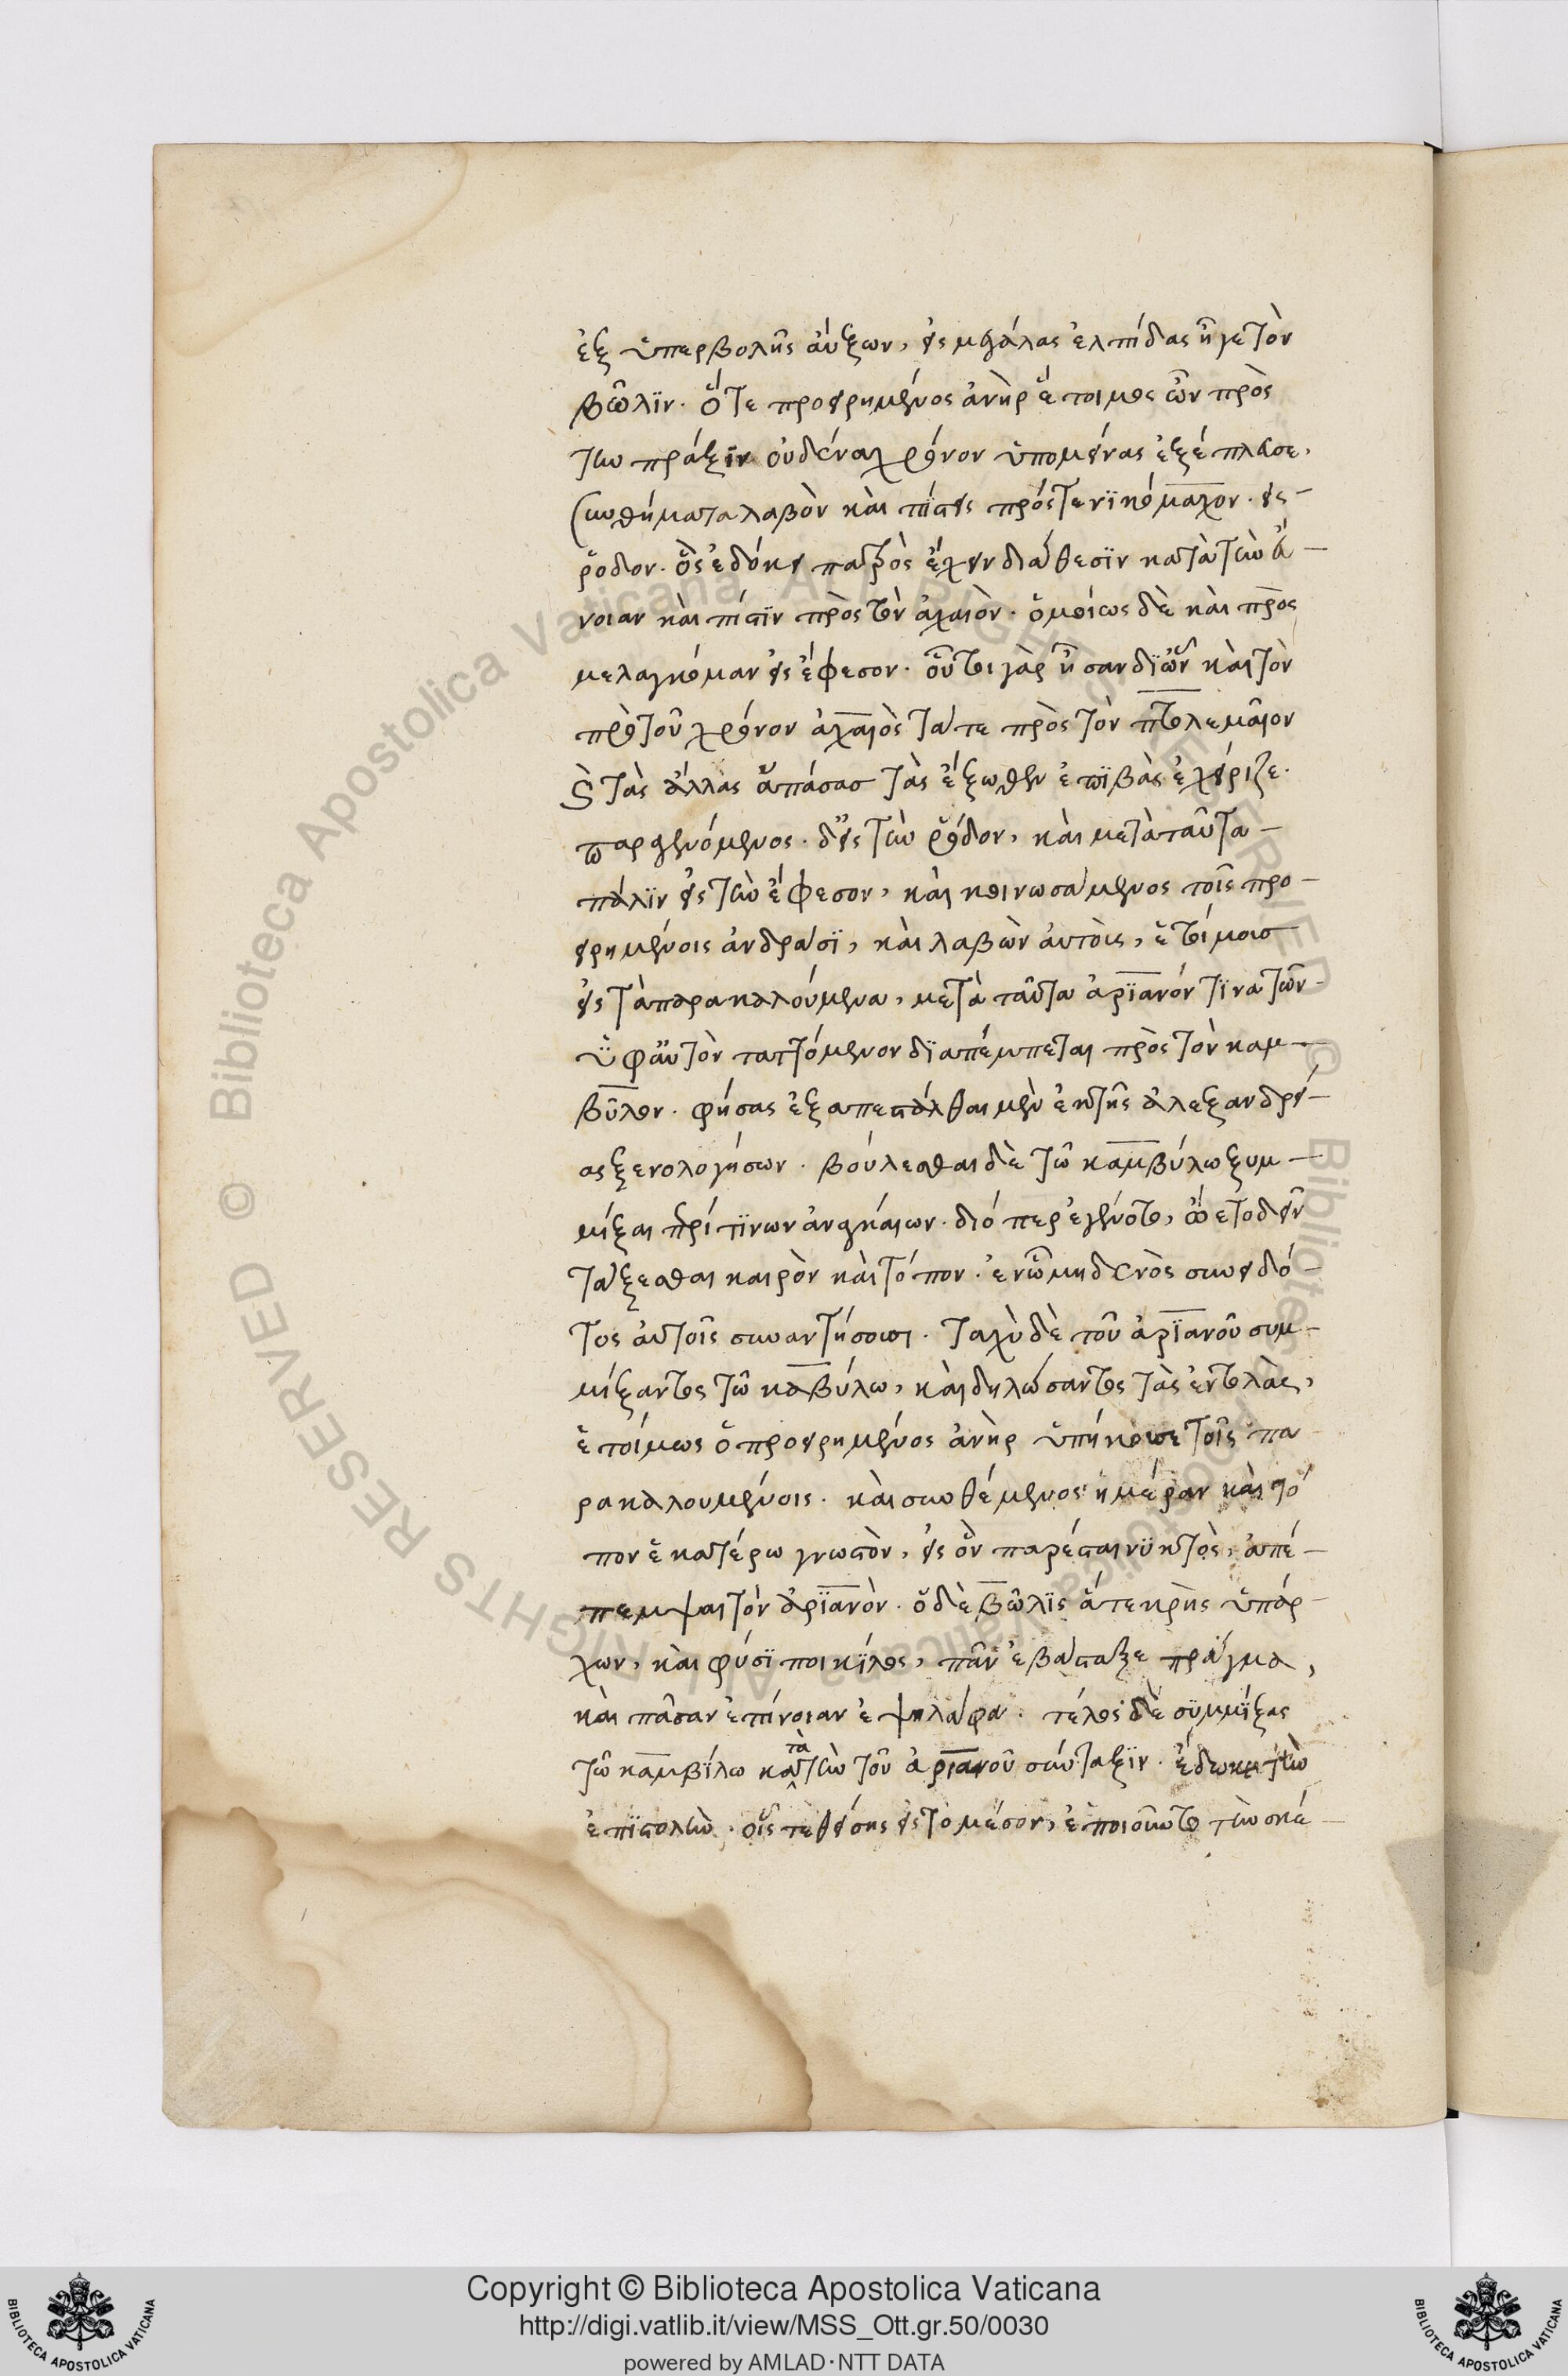 ἐξ ὑπερβολῆς αὔξων, εἰς μεγάλας ἐλπίδας ἦγε τὸν
βῶλϊν. ὅ τε προειρημένος ἀνὴρ ἕτοιμος ὢν πρὸς
τὴν πράξιν οὐδένα χρόνον ὑπομείνας ἐξέπλευσε,
συνθήματα λαβὸν καὶ πίστεις πρός τε νϊκόμαχον. εἰς
ῥόδον. ὃς ἐδόκει πατρὸς ἔχειν διάθεσϊν κατὰ τὴν εὔ
νοιαν καὶ πίστϊν πρὸς τὸν ἀχαιὸν. ὁμοίως δὲ καὶ πρὸς
μελαγκόμαν εἰς ἔφεσον. οὗτοι γὰρ ἦσαν δϊ ὧν καὶ τὸν
πρὸ τοῦ χρόνον ἀχαιὸς τά τε πρὸς τὸν πτολεμαῖον
καὶ τὰς ἄλλας ἁπάσας τὰς ἔξωθεν ἐπϊβὰς ἐχείριζε.
παραγενόμενος. δ' εἰς τὴν ῥόδον, καὶ μετὰ ταῦτα
πάλϊν εἰς τὴν ἔφεσον, καὶ κοινωσάμενος τοῖς προ
ειρημένοις ἀνδράσϊ, καὶ λαβὼν αὐτοὺς, ἑτοίμοις
εἰς τὰ παρακαλούμενα, μετὰ ταῦτα ἀρϊανόν τϊνα τῶν
ὑφ' αὑτὸν ταττόμενον δϊαπέμπεται πρὸς τὸν καμ
βῦλον. φήσας ἐξαπεστάλθαι μὲν ἐκ τῆς ἀλεξανδρεί
ας ξενολογήσων. βούλεσθαι δὲ τῶ καμβύλω ξυμ
μίξαι περί τϊνων ἀναγκαίων. διό περ ἐγένετο, ὤετο δεῖν
τάξεσθαι καιρὸν καὶ τόπον. ἐν ὧ μηδενὸς συνειδό
τος αὐτοῖς συναντήσουσι. ταχὺ δὲ τοῦ ἀρϊανοῦ συμ
μίξαντος τῶ καβύλω, καὶ δηλώσαντος τὰς ἐντολὰς,
ἑτοίμως ὁ προειρημένος ἀνὴρ ὑπήκουσε τοῖς πα
ρακαλουμένοις. καὶ συνθέμενος ἡμέραν καὶ τό
πον ἑκατέρω γνωστὸν, εἰς ὃν παρέσται νϋκτὸς, ἀπέ
πεμψαι τὸν ἀρϊανὸν. ὁ δὲ βῶλϊς ἅτε κρὴς ὑπάρ
χων, καὶ φύσϊ ποικϊλος, πᾶν ἐβάσταζε πρᾶγμα,
καὶ πᾶσαν ἐπίνοιαν ἐψηλάφα. τέλος δὲ σϋμμϊξας
τῶ καμβϊλω κατὰ τὴν τοῦ ἀριανοῦ σύνταξϊν. ἔδωκε τὴν
ἐπϊστολὴν. οἷς τεθείσης εἰς τὸ μέσον, ἐποιοῦντο τὴν σκέ
Copyright © Biblioteca Apostolica Vaticana
http://digi.vatlib.it/view/MSS_Ott.gr.50/0030
powered by AMLAD·NTT DATA